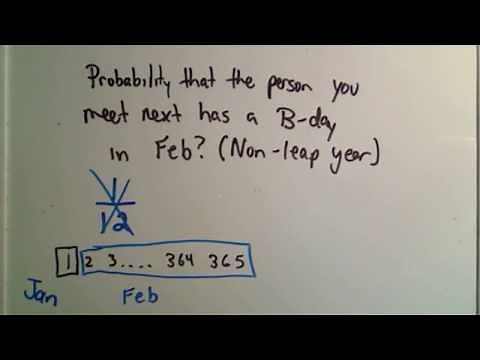 Probability that the person you
meet next has a B-day
in Feb? (Non-leap year)
1/2
1 2 3.... 364 365
Jan Feb